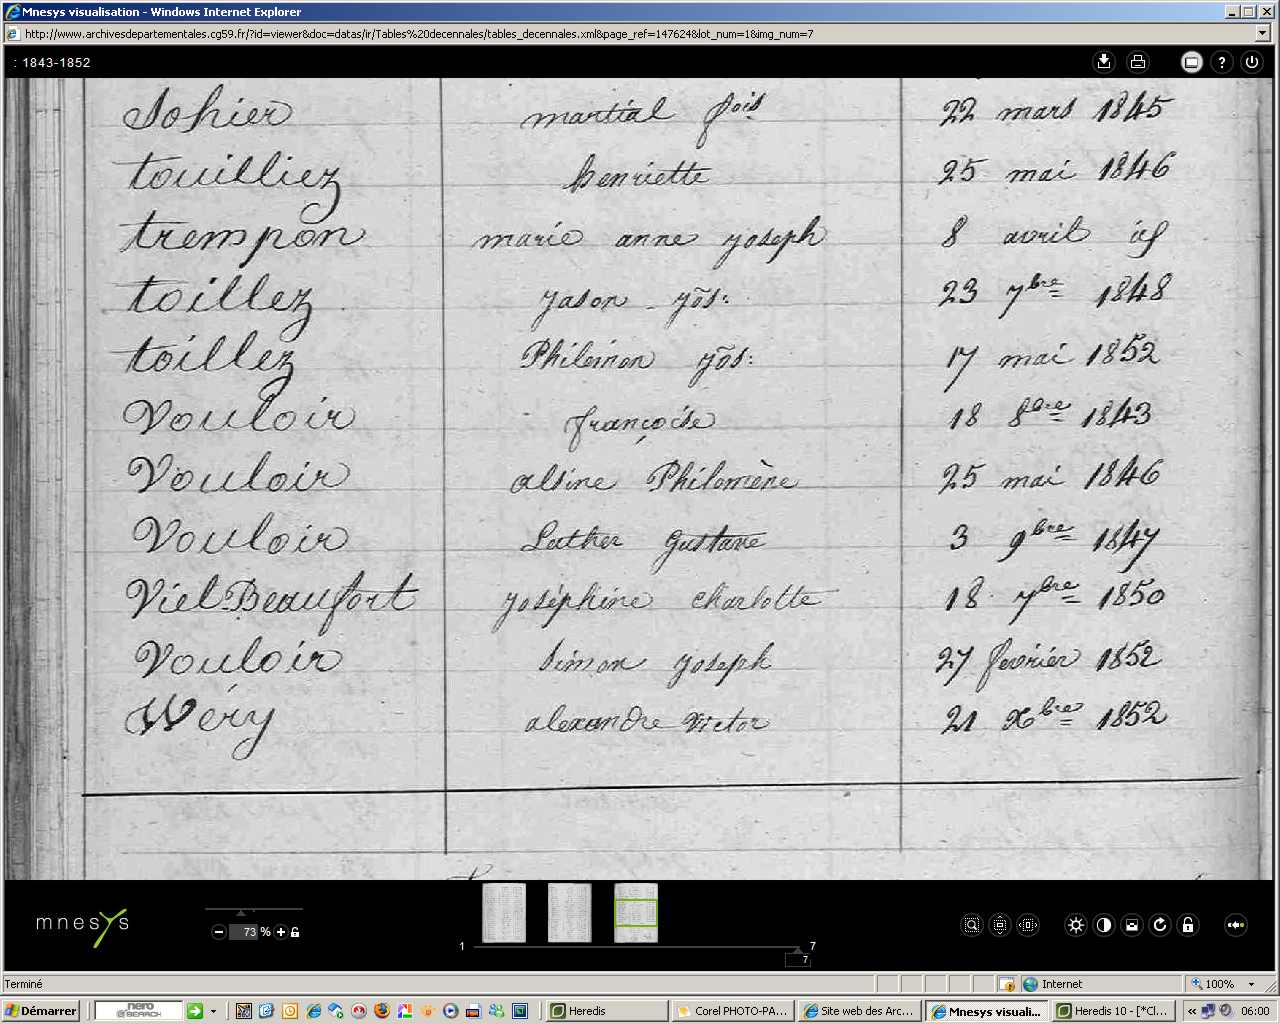 Mnesys visualisation - Windows Internet Explorer
http://www.archivesdepartementales.cg59.fr/?id=viewer&doc=datas/ir/Tables%20decennales/tables_decennales.xml&page_ref=147624&lot_num=1&img_num=7
: 1843-1852
Sohier martial fois 22 mars 1845
touilliez henriette 25 mai 1846
trempon marie anne joseph 8 avril id
toillez jason jōs: 23 7bre 1848
toillez Philémon jōs: 17 mai 1852
Vouloir françoise 18 8bre 1843
Vouloir alsine Philomène 25 mai 1846
Vouloir Luther Gustave 3 9bre 1847
Viel Beaufort joséphine charlotte 18 7bre 1850
Vouloir simon joseph 27 fevrier 1852
Wéry alexandre victor 21 Xbre 1852
mnesys
73 %
1 7
7
Terminé Internet 100%
Démarrer nero SEARCH Heredis Corel PHOTO-PA... Site web des Arc... Mnesys visuali... Heredis 10 - [*Cl... 06:00